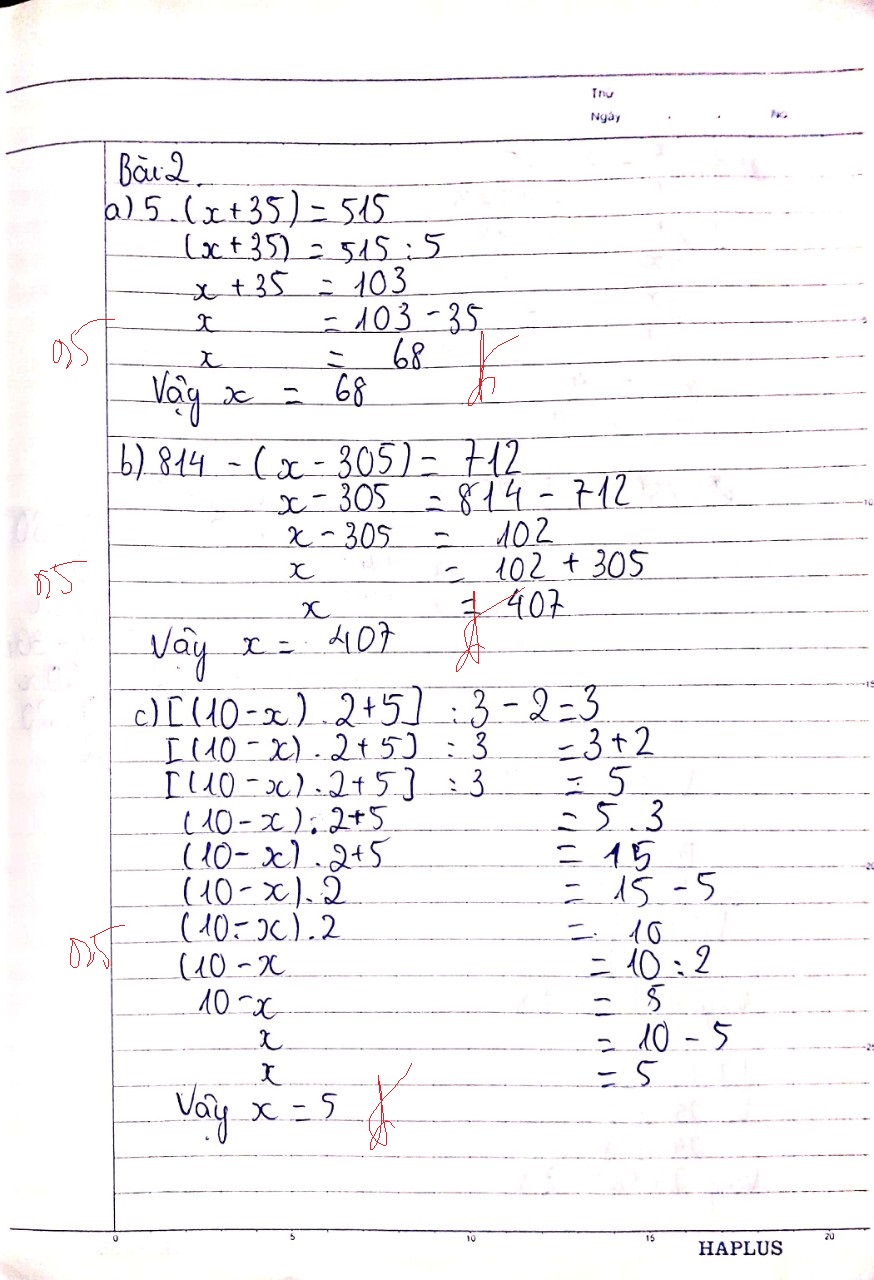 Thứ
Ngày . . No
Bài 2
a) 5 . (x + 35) = 515
(x + 35) = 515 : 5
x + 35 = 103
x = 103 - 35
0,5
x = 68 đ
Vậy x = 68
b) 814 - (x - 305) = 712
x - 305 = 814 - 712
x - 305 = 102
0,5
x = 102 + 305
x = 407
Vậy x = 407 đ
c) [(10 - x) . 2 + 5] : 3 - 2 = 3
[(10 - x) . 2 + 5] : 3 = 3 + 2
[(10 - x) . 2 + 5] : 3 = 5
(10 - x) . 2 + 5 = 5 . 3
(10 - x) . 2 + 5 = 15
(10 - x) . 2 = 15 - 5
(10 - x) . 2 = 10
0,5
(10 - x = 10 : 2
10 - x = 5
x = 10 - 5
x = 5
Vậy x = 5 đ
0 5 10 15 20
HAPLUS